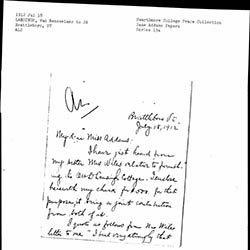 1912 Jul 18
Brattleboro, Vt
ALS
Swarthmore College Peace Collection
Jane Addams Papers
Series 1
Brattleboro Vt.
July 18, 1912
My dear Miss Addams:
I have just heard from
my sister Mrs Wiles relative to furnish-
ing the Cottage. I enclose
herewith my check for for that
purpose, it being a joint contribution
from both of us.
I quote as follows from Mrs Wiles
letter to me - "I find that